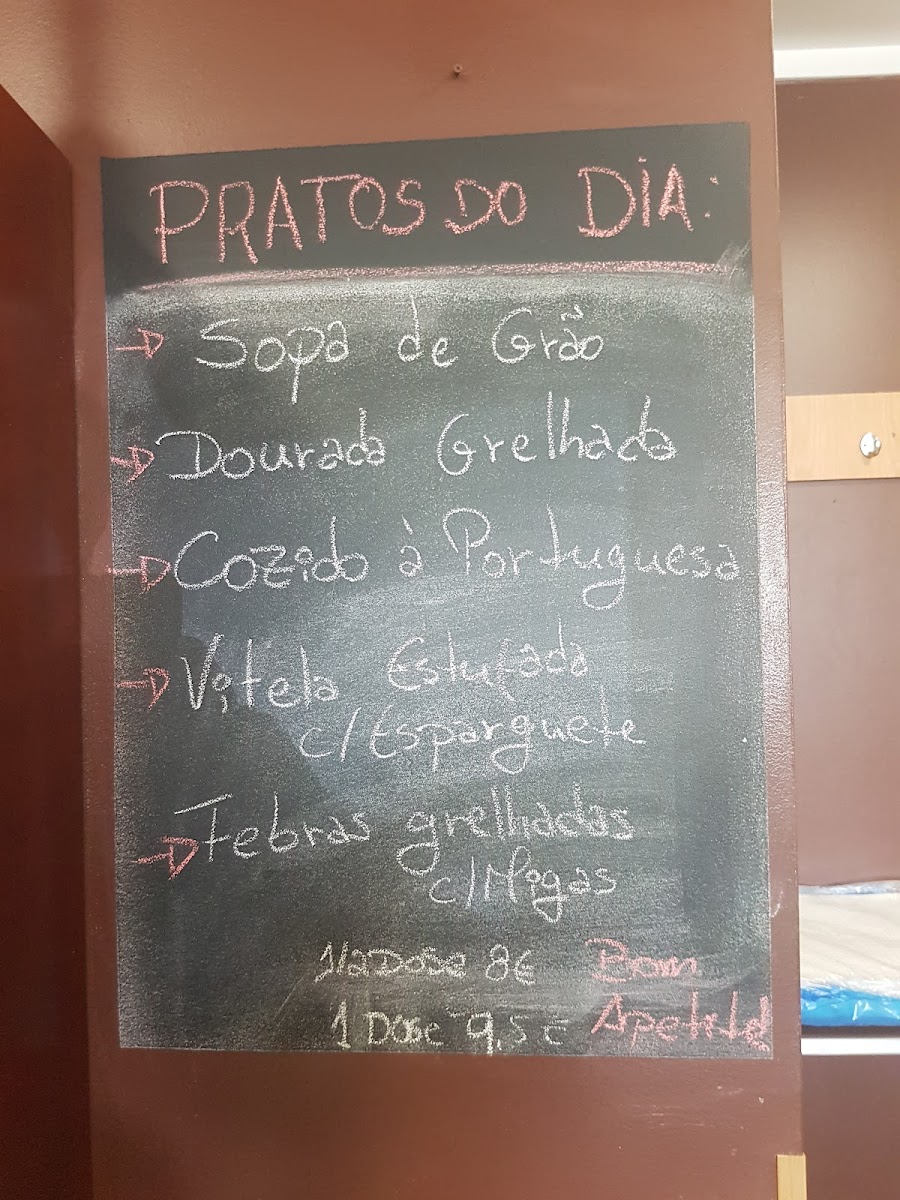 PRATOS DO DIA:
Sopa de Grão
Dourada Grelhada
Cozido à Portuguesa
Vitela Estufada
c/Esparguete
Febras grelhadas
c/Migas
1/2 DOSE 8€ Bom
1 DOSE 9,5€ Apetite!